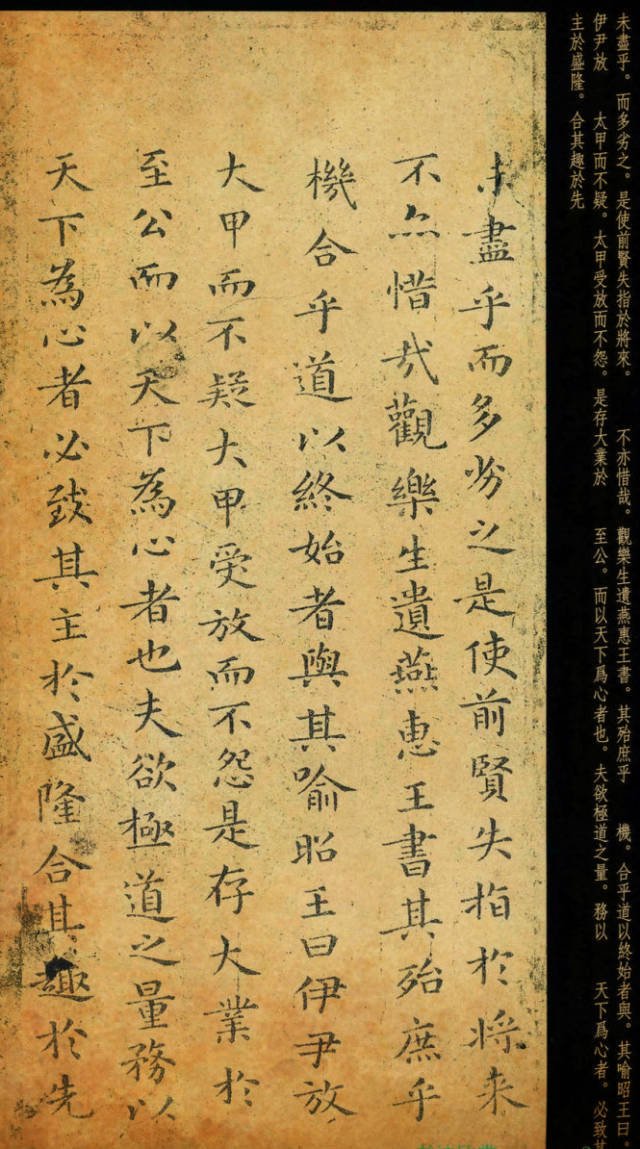 未盡乎。而多劣之。是使前賢失指於將來。 不亦惜哉。觀樂生遺燕惠王書。其殆庶乎 機。合乎道以終始者與。其喻昭王曰。
伊尹放 太甲而不疑。太甲受放而不怨。是存大業於 至公。而以天下爲心者也。夫欲極道之量。務以 天下爲心者。必致其
主於盛隆。合其趣於先
未盡乎而多劣之是使前賢失指於將来
不亦惜哉觀樂生遺燕惠王書其殆庶乎
機合乎道以終始者與其喻昭王曰伊尹放
大甲而不疑大甲受放而不怨是存大業於
至公而以天下為心者也夫欲極道之量務以
天下為心者必致其主於盛隆合其趣於先